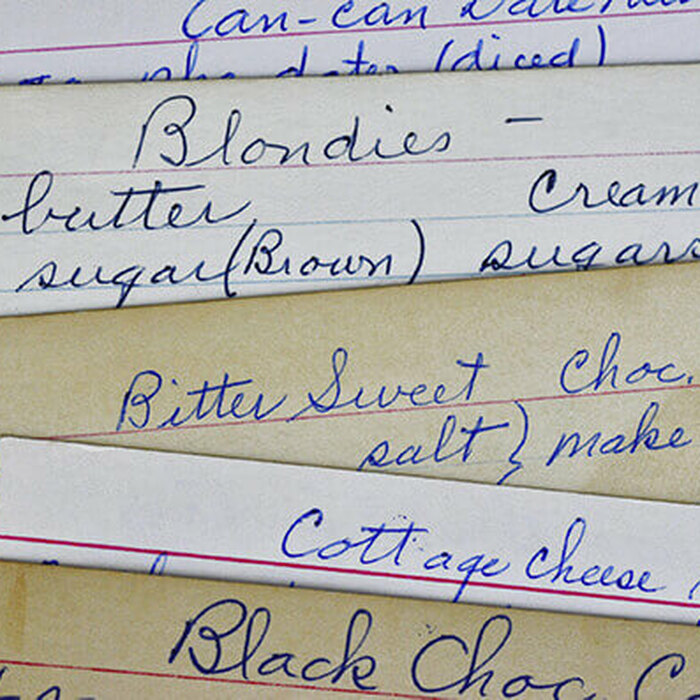 Can-can Date
dates (diced)
Blondies -
butter Cream
sugar (Brown) sugars
Bitter Sweet Choc.
salt } make
Cottage cheese
Black Choc C